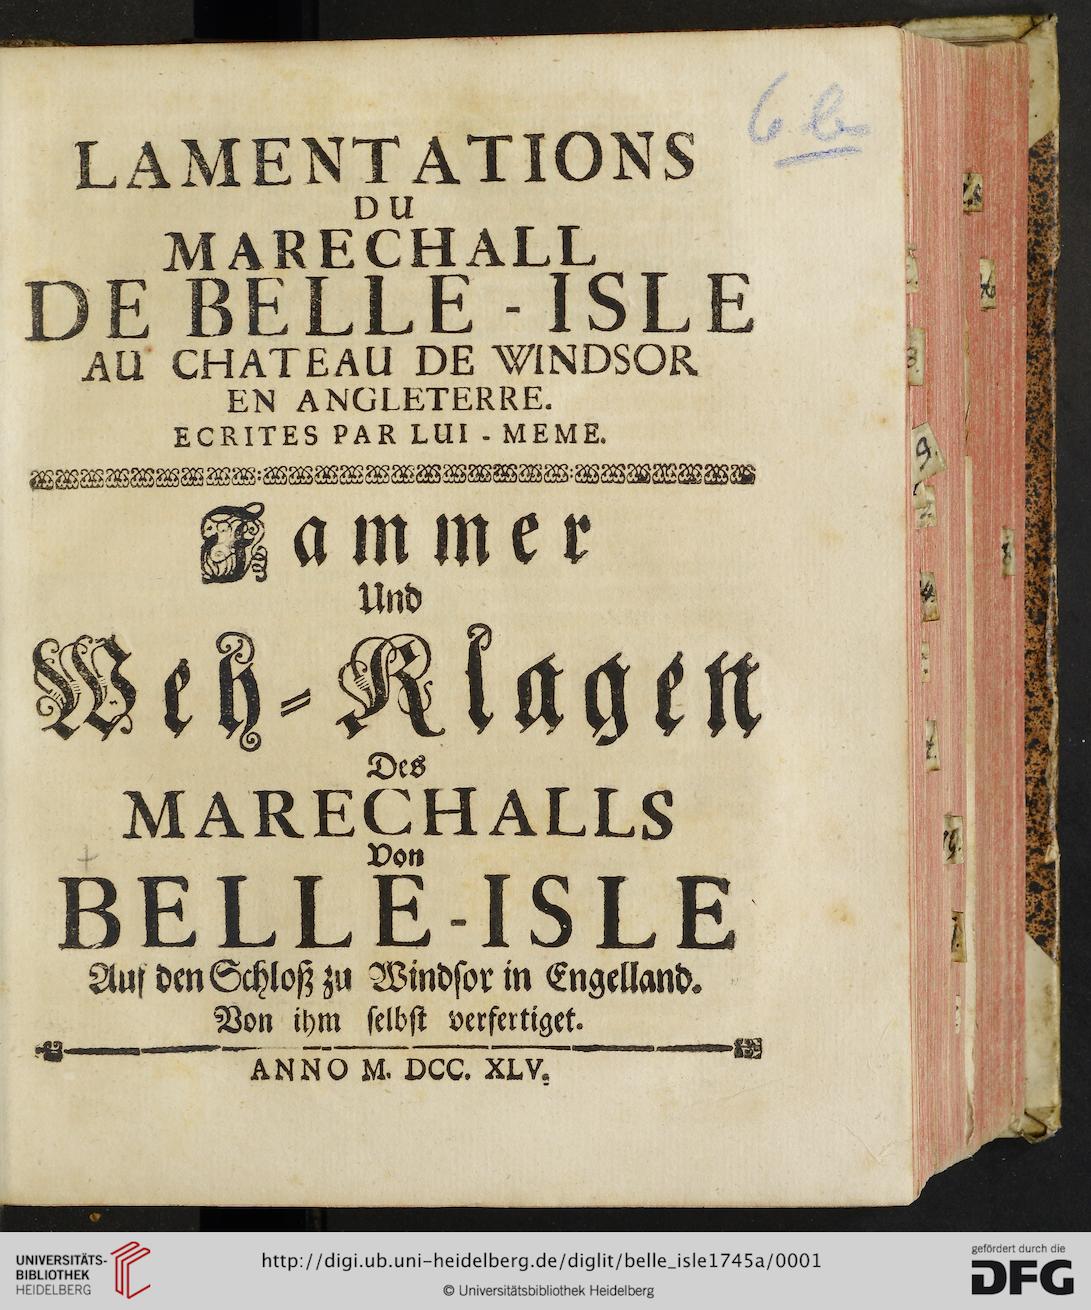 6 b
LAMENTATIONS
DU
MARECHALL
DE BELLE - ISLE
AU CHATEAU DE WINDSOR
EN ANGLETERRE.
ECRITES PAR LUI - MEME.
Jammer
Und
Weh-Klagen
Des
MARECHALLS
Von
BELLE-ISLE
Auf den Schloß zu Windſor in Engelland.
Von ihm ſelbſt verfertiget.
ANNO M. DCC. XLV.
9
UNIVERSITÄTS-
BIBLIOTHEK
HEIDELBERG
http://digi.ub.uni-heidelberg.de/diglit/belle_isle1745a/0001
© Universitätsbibliothek Heidelberg
gefördert durch die
DFG